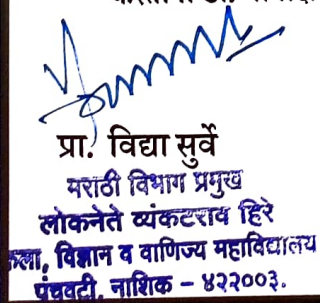 प्रा. विद्या सुर्वे
मराठी विभाग प्रमुख
लोकनेते व्यंकटराव हिरे
कला, विज्ञान व वाणिज्य महाविद्यालय
पंचवटी, नाशिक - ४२२००३.